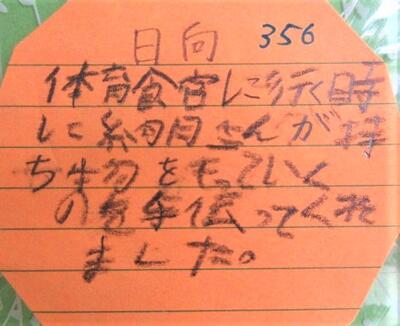 日向 356
体育館に行く時
に さんが持
ち物をもっていく
のを手伝ってくれ
ました。